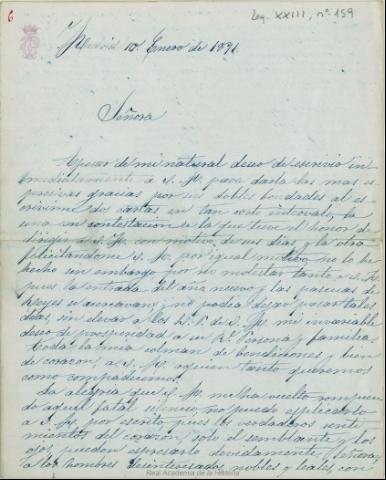 6
Leg. XXIII, nº 159
Madrid 10 Enero de 1891
Señora
Apesar de mi natural deseo de escrivir in-
mediatamente a S. M. para darla las mas es-
presivas gracias por sus dobles bondades al es-
crivirme dos cartas en tan corto intervalo, la
una en contestacion a la que tuve el honor de
dirigir a S. M. con motivo de sus dias y la otra
felicitandome S. M. por igual motivo no lo he
hecho sin embargo por no molestar tanto a S. M.
pues la entrada del año nuevo y las pascuas de
Reyes se acercavan y no podia dejar pasar tales
dias, sin decar a los R. P. de S. M. mi invariable
deseo de prosperidad a su Rl. Persona y familia.
Toda la mia colman de bendiciones y bien
de corazon, a S. M. a quien tanto queremos
como compadecemos.
La alegria que S. M. me ha vuelto rompien-
do aquel fatal silencio, no puedo esplicarlo
a S. M. por escrito, pues los verdaderos senti-
mientos del corazon, solo el semblante y los
ojos pueden espresarlo devidamente, Señora,
a los hombres desinteresados nobles y leales, con
Real Academia de la Historia